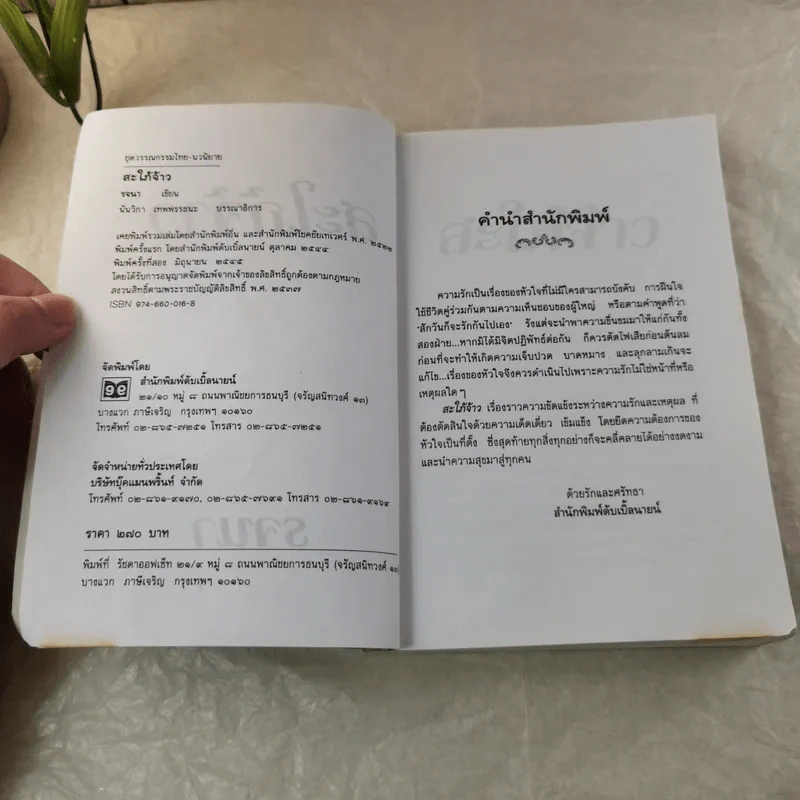 ชุดวรรณกรรมไทย-นวนิยาย
สะใภ้จ้าว
รจนา เขียน
นันวิภา เทพพรรธนะ บรรณาธิการ
เคยพิมพ์รวมเล่มโดยสำนักพิมพ์อื่น และสำนักพิมพ์โชคชัยเทเวศร์ พ.ศ. ๒๕๒๒
พิมพ์ครั้งแรก โดยสำนักพิมพ์ดับเบิ้ลนายน์ ตุลาคม ๒๕๔๔
พิมพ์ครั้งที่สอง มิถุนายน ๒๕๔๕
โดยได้รับการอนุญาตจัดพิมพ์จากเจ้าของลิขสิทธิ์ถูกต้องตามกฎหมาย
สงวนสิทธิ์ตามพระราชบัญญัติลิขสิทธิ์ พ.ศ. ๒๕๓๗
ISBN 974-660-016-8
จัดพิมพ์โดย
สำนักพิมพ์ดับเบิ้ลนายน์
๒๑/๑๐ หมู่ ๘ ถนนพาณิชยการธนบุรี (จรัญสนิทวงศ์ ๑๓)
บางแวก ภาษีเจริญ กรุงเทพฯ ๑๐๑๖๐
โทรศัพท์ ๐๒-๘๖๕-๗๒๕๑ โทรสาร ๐๒-๘๖๕-๗๒๕๑
จัดจำหน่ายทั่วประเทศโดย
บริษัทบุ๊คแมนพริ้นท์ จำกัด
โทรศัพท์ ๐๒-๘๖๑-๙๑๗๐, ๐๒-๘๖๕-๗๖๙๑ โทรสาร ๐๒-๘๖๑-๙๑๖๔
ราคา ๒๗๐ บาท
พิมพ์ที่ รัชดาออฟเซ็ท ๒๑/๙ หมู่ ๘ ถนนพาณิชยการธนบุรี (จรัญสนิทวงศ์ ๑๓)
บางแวก ภาษีเจริญ กรุงเทพฯ ๑๐๑๖๐
คำนำสำนักพิมพ์
ความรักเป็นเรื่องของหัวใจที่ไม่มีใครสามารถบังคับ การฝืนใจ
ใช้ชีวิตคู่ร่วมกันตามความเห็นชอบของผู้ใหญ่ หรือตามคำพูดที่ว่า
'สักวันก็จะรักกันไปเอง' รังแต่จะนำพาความขื่นขมมาให้แก่กันทั้ง
สองฝ่าย...หากมิได้มีจิตปฏิพัทธ์ต่อกัน ก็ควรตัดไฟเสียก่อนต้นลม
ก่อนที่จะทำให้เกิดความเจ็บปวด บาดหมาง และลุกลามเกินจะ
แก้ไข...เรื่องของหัวใจจึงควรดำเนินไปเพราะความรักไม่ใช่หน้าที่หรือ
เหตุผลใด ๆ
สะใภ้จ้าว เรื่องราวความขัดแย้งระหว่างความรักและเหตุผล ที่
ต้องตัดสินใจด้วยความเด็ดเดี่ยว เข้มแข็ง โดยยึดความต้องการของ
หัวใจเป็นที่ตั้ง ซึ่งสุดท้ายทุกสิ่งทุกอย่างก็จะคลี่คลายได้อย่างงดงาม
และนำความสุขมาสู่ทุกคน
ด้วยรักและศรัทธา
สำนักพิมพ์ดับเบิ้ลนายน์